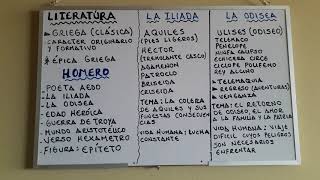 LITERATURA
GRIEGA (CLÁSICA)
CARACTER ORIGINARIO
Y FORMATIVO
ÉPICA GRIEGA
HOMERO
- POETA AEDO
- LA ILIADA
- LA ODISEA
- EDAD HERÓICA
- GUERRA DE TROYA
- MUNDO ARISTOTÉLICO
- VERSO HEXÁMETRO
- FIGURA: EPÍTETO
LA ILIADA
AQUILES
(PIES LIGEROS)
HECTOR
(TREMOLANTE CASCO)
AGAMENON
PATROCLO
BRISEIDA
CRISEIDA
TEMA: LA COLERA
DE AQUILES Y SUS
FUNESTAS CONSECUEN
CIAS
VIDA HUMANA: LUCHA
CONSTANTE
LA ODISEA
ULISES (ODISEO)
TELEMACO
PENELOPE
NINFA CALIPSO
HECHICERA CIRCE
CICLOPE POLIFEMO
REY ALCINO
TELEMAQUIA
REGRESO (AVENTURAS)
VENGANZA
TEMA: EL RETORNO
DE ODISEO, EL AMOR
A LA FAMILIA Y LA PATRIA
VIDA HUMANA: VIAJE
DIFICIL CUYOS PELIGROS
SON NECESARIOS
ENFRENTAR